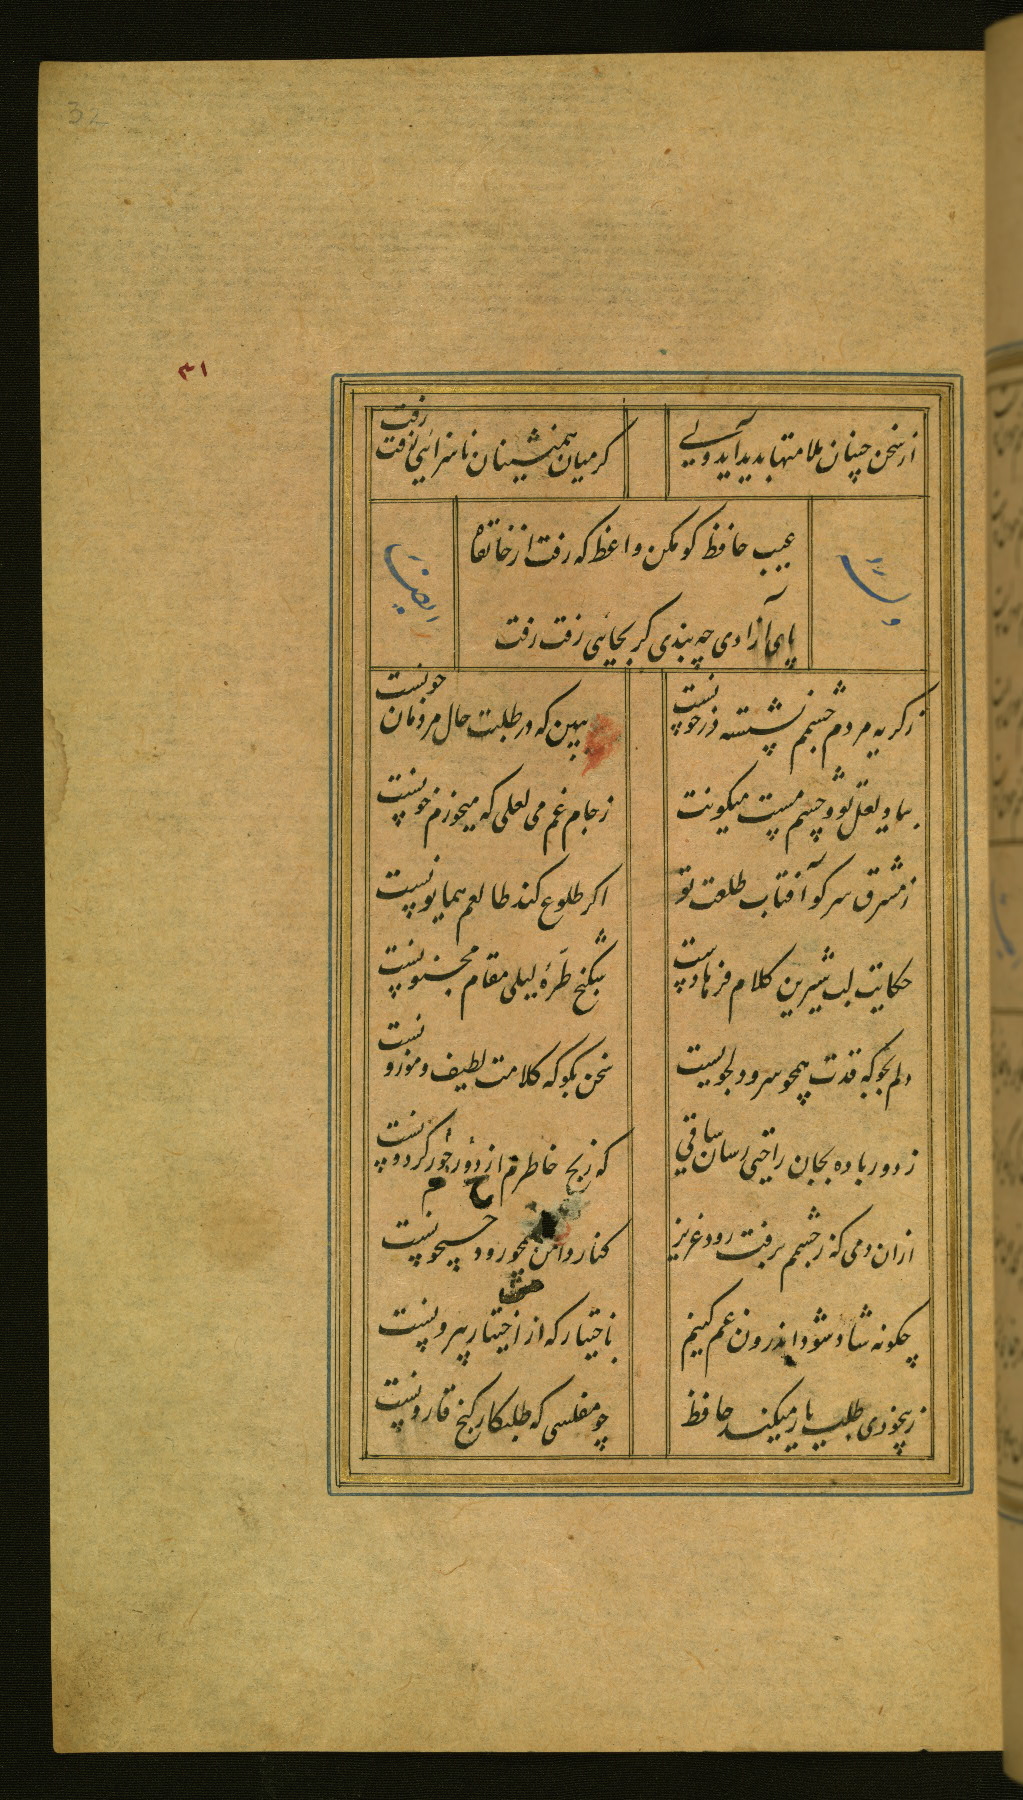 32
۳۱
از سخن چینان ملامتها بدید آید ولی
کر میان همنشینان ناسزائی رفت رفت
عیب حافظ کو مکن واعظ که رفت از خانقاه
پای آزادی چه بندی کر بجائی رفت رفت
وله
ایضا
ز کریه مردم چشمم نشسته در خونست
ببین که در طلبت حال مردمان چونست
بیاد لعل تو و چشم مست میکونت
ز جام غم می لعلی که میخورم خونست
ز مشرق سر کو آفتاب طلعت تو
اکر طلوع کند طالعم همایونست
حکایت لب شیرین کلام فرهادست
شکنج طرهٔ لیلی مقام مجنونست
دلم بجو که قدت همچو سرو دلجویست
سخن بکو که کلامت لطیف و موزونست
ز دور باده بجان راحتی رسان ساقی
که رنج خاطرم از دور جور کردونست
از ان دمی که ز چشمم برفت رود عزیز
کنار دامن همچو رود جیحونست
چکونه شاد شود اندرون غمکینم
باختیار که از اختیار بیرونست
ز بیخودی طلب یار میکند حافظ
چو مفلسی که طلبکار کنج قارونست